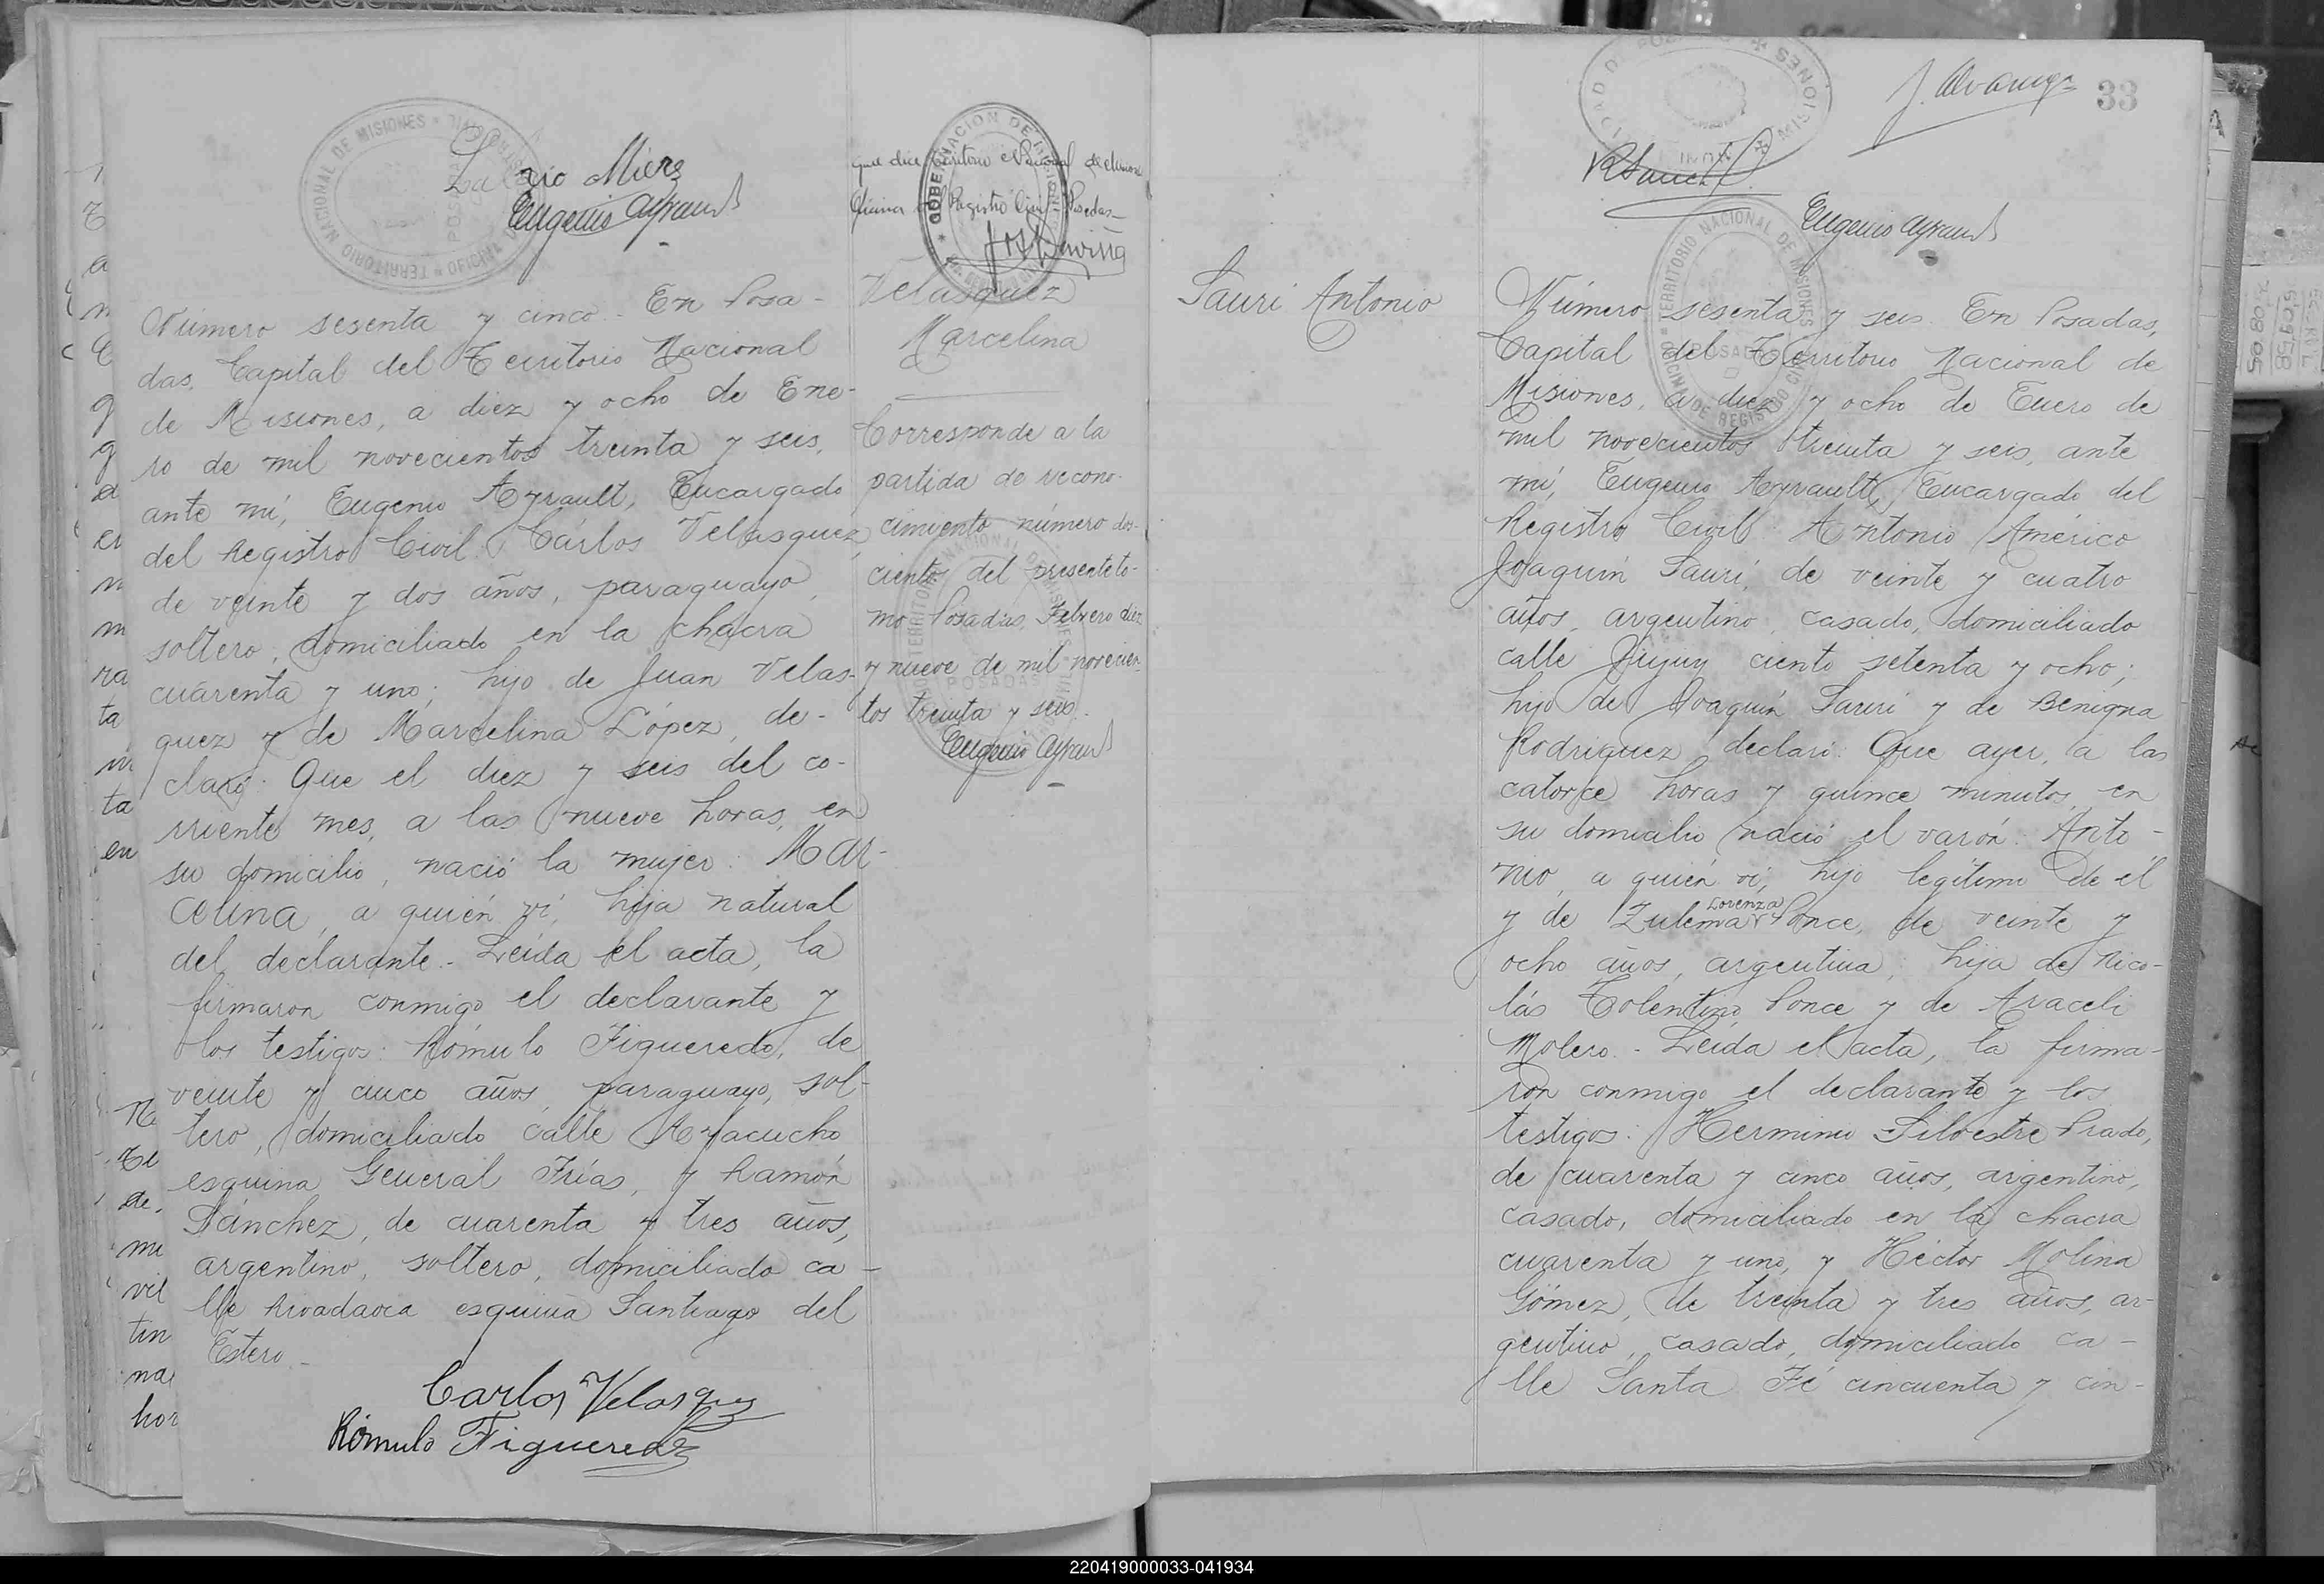 Eugenio Ayrault
Número sesenta y cinco.- En Posa-
das, Capital del Territorio Nacional
de Misiones, a diez y ocho de Ene-
ro de mil novecientos treinta y seis,
ante mí, Eugenio Ayrault, Encargado
del Registro Civil: Cárlos Velasquez,
de veinte y dos años, paraguayo,
soltero, domiciliado en la chacra
cuarenta y uno; hijo de Juan Velas-
quez y de Marcelina López, de-
claró: Que el diez y seis del co-
rriente mes, a las nueve horas, en
su domicilio, nació la mujer: Mar-
celina, a quién ví, hija natural
del declarante.- Leída el acta, la
firmaron conmigo el declarante y
los testigos: Rómulo Figueredo, de
veinte y cinco años, paraguayo, sol-
tero, domiciliado calle Ayacucho
esquina General Frías, y Ramón
Sánchez, de cuarenta y tres años,
argentino, soltero, domiciliado ca-
lle Rivadavia esquina Santiago del
Estero.-
Carlos Velasquez
Rómulo Figueredo
que dice Territorio Nacional de Misiones
Oficina Registro Civil Posadas-
GOBERNACION DE MISIONES
Velasquez
Marcelina
Corresponde a la
partida de recono-
cimiento número dos-
ciento del presente to-
mo Posadas, Febrero diez
y nueve de mil novecien-
tos treinta y seis.
Eugenio Ayrault
33
Eugenio Ayrault
TERRITORIO NACIONAL DE MISIONES
OFICINA DE REGISTRO CIVIL
POSADAS
Sauri Antonio
Número sesenta y seis. En Posadas,
Capital del Territorio Nacional de
Misiones, a diez y ocho de Enero de
mil novecientos treinta y seis, ante
mí, Eugenio Ayrault, Encargado del
Registro Civil: Antonio Américo
Joaquín Sauri, de veinte y cuatro
años, argentino, casado, domiciliado
calle Jujuy ciento setenta y ocho;
hijo de Joaquín Sauri y de Benigna
Rodriguez, declaró: Que ayer, a las
catorce horas y quince minutos, en
su domicilio nació el varón: Anto-
nio, a quién ví, hijo legítimo de él
y de Zulema Lorenza Ponce, de veinte y
ocho años, argentina; hija de Nico-
lás Tolentino Ponce y de Araceli
Molero.- Leída el acta, la firma-
ron conmigo el declarante y los
testigos: Herminio Silvestre Prado,
de cuarenta y cinco años, argentino,
casado, domiciliado en la chacra
cuarenta y uno, y Héctor Molina
Gómez, de treinta y tres años, ar-
gentino, casado, domiciliado ca-
lle Santa Fé cincuenta y cin-
220419000033-041934